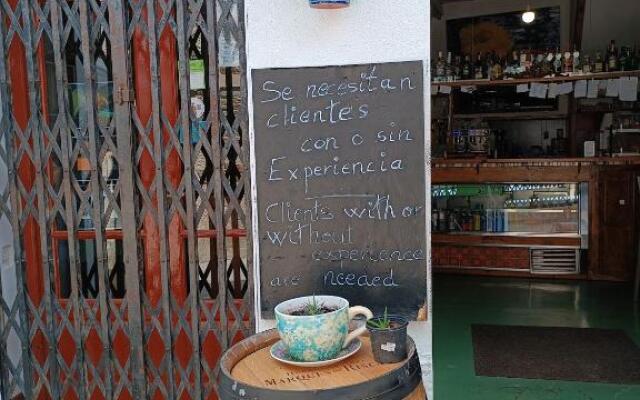 Se necesitan
clientes
con o sin
Experiencia
Clients with or
without
experience
are needed
MARQUÉS DE RISCAL